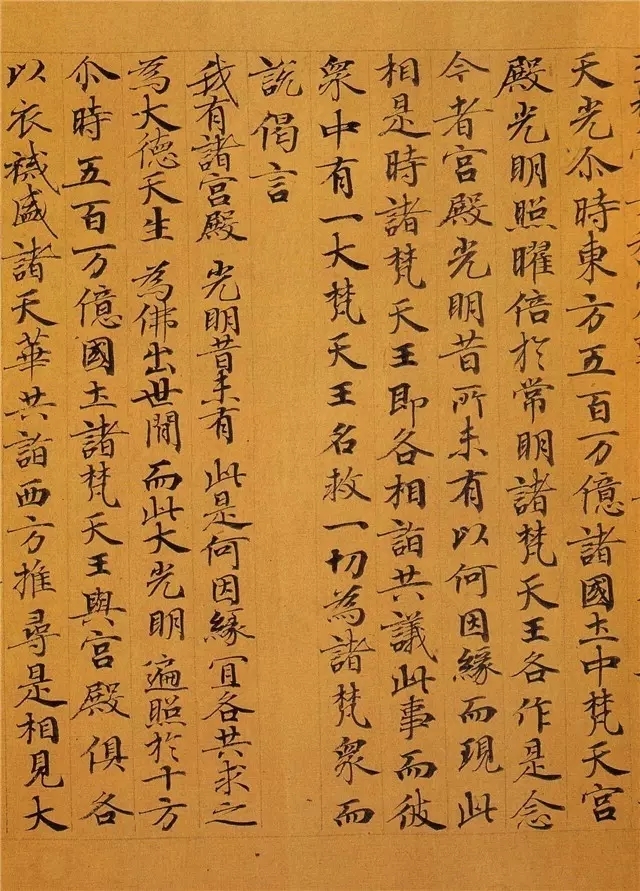 天光尒時東方五百万億諸國土中梵天宮
殿光明照曜倍於常明諸梵天王各作是念
今者宮殿光明昔所未有以何因緣而現此
相是時諸梵天王即各相詣共議此事而彼
衆中有一大梵天王名救一切為諸梵衆而
說偈言
我有諸宮殿 光明昔未有 此是何因緣 冝各共求之
為大德天生 為佛出世間 而此大光明 遍照於十方
尒時五百万億國土諸梵天王與宮殿俱各
以衣裓盛諸天華共詣西方推尋是相見大